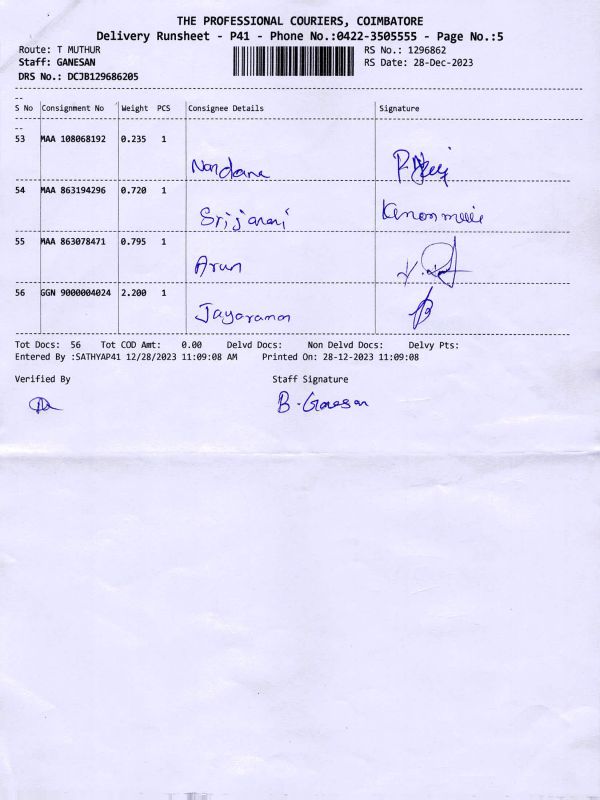 THE PROFESSIONAL COURIERS, COIMBATORE
Delivery Runsheet - P41 - Phone No.:0422-3505555 - Page No.:5
Route: T MUTHUR
RS No.: 1296862
Staff: GANESAN
RS Date: 28-Dec-2023
DRS No.: DCJB129686205
S No Consignment No Weight PCS Consignee Details Signature
53 MAA 108068192 0.235 1
Nandana
54 MAA 863194296 0.720 1
Srijanani
55 MAA 863078471 0.795 1
Arun
56 GGN 9000004024 2.200 1
Jayaraman
Tot Docs: 56 Tot COD Amt: 0.00 Delvd Docs: Non Delvd Docs: Delvy Pts:
Entered By :SATHYAP41 12/28/2023 11:09:08 AM Printed On: 28-12-2023 11:09:08
Verified By Staff Signature
B. Ganesan